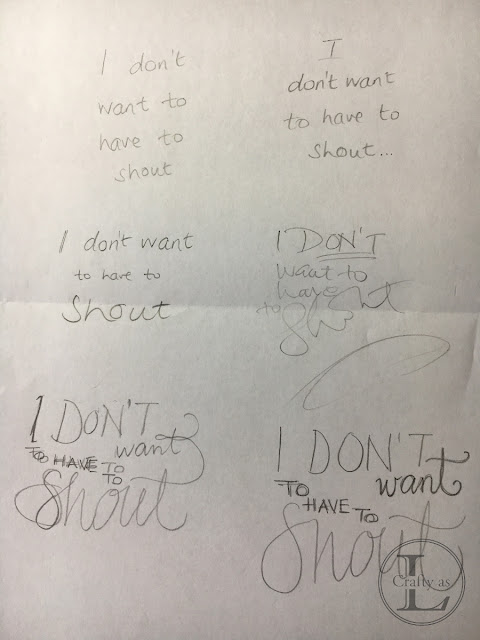 I don't
want to
have to
shout
I
don't want
to have to
shout...
I don't want
to have to
Shout
I DON'T
want to
have
to Shout
I DON'T
want
TO HAVE TO
TO
Shout
I DON'T
want
TO
HAVE TO
Shout
L
Crafty as